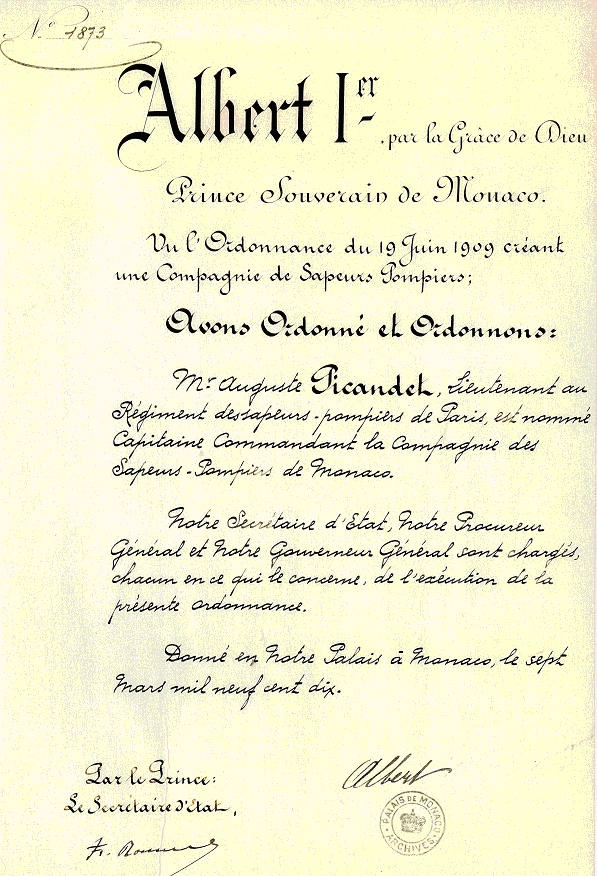 N.º 1873
Albert Ier, par la Grâce de Dieu
Prince Souverain de Monaco.
Vu l'Ordonnance du 19 Juin 1909 créant
une Compagnie de Sapeurs Pompiers;
Avons Ordonné et Ordonnons:
Mr Auguste Picandet, Lieutenant au
Régiment des sapeurs-pompiers de Paris, est nommé
Capitaine Commandant la Compagnie des
Sapeurs-Pompiers de Monaco.
Notre Secrétaire d'Etat, Notre Procureur
Général et Notre Gouverneur Général sont chargés,
chacun en ce qui le concerne, de l'exécution de la
présente ordonnance.
Donné en Notre Palais à Monaco, le sept
Mars mil neuf cent dix.
Par le Prince:
Le Secrétaire d'Etat,
Albert
PALAIS DE MONACO
ARCHIVES